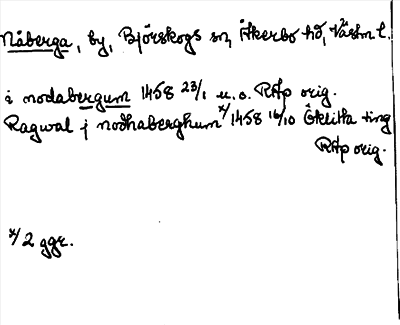 Nåberga, by, Björskogs sn, Åkerbo hd, Västm l.
i nodabergum 1458 23/1 u.o. RAp orig.
Ragwal j nodhaberghum x/ 1458 16/10 Öklitta ting
RAp orig.
x/ 2 ggr.